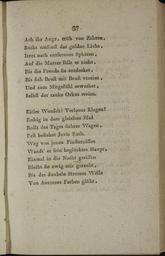 37
Ach ihr Auge, trüb von Zähren,
Sucht umsonst das goldne Licht,
Irret nach entfernten Sphären,
Auf die Mutter fällt es nicht.
Bis die Freude sie entdecket,
Bis sich Brust mit Brust vereint,
Und zum Mitgefühl erwecket,
Selbst der rauhe Orkus weint.
Eitler Wunsch! Verlorne Klagen!
Ruhig in dem gleichen Gleis
Rollt des Tages sichrer Wagen,
Fest bestehet Jovis Rath.
Weg von jenen Finsternissen
Wandt' er sein beglücktes Haupt,
Einmal in die Nacht gerissen
Bleibt sie ewig mir geraubt,
Bis des dunkeln Stromes Welle
Von Aurorens Farben glüht,